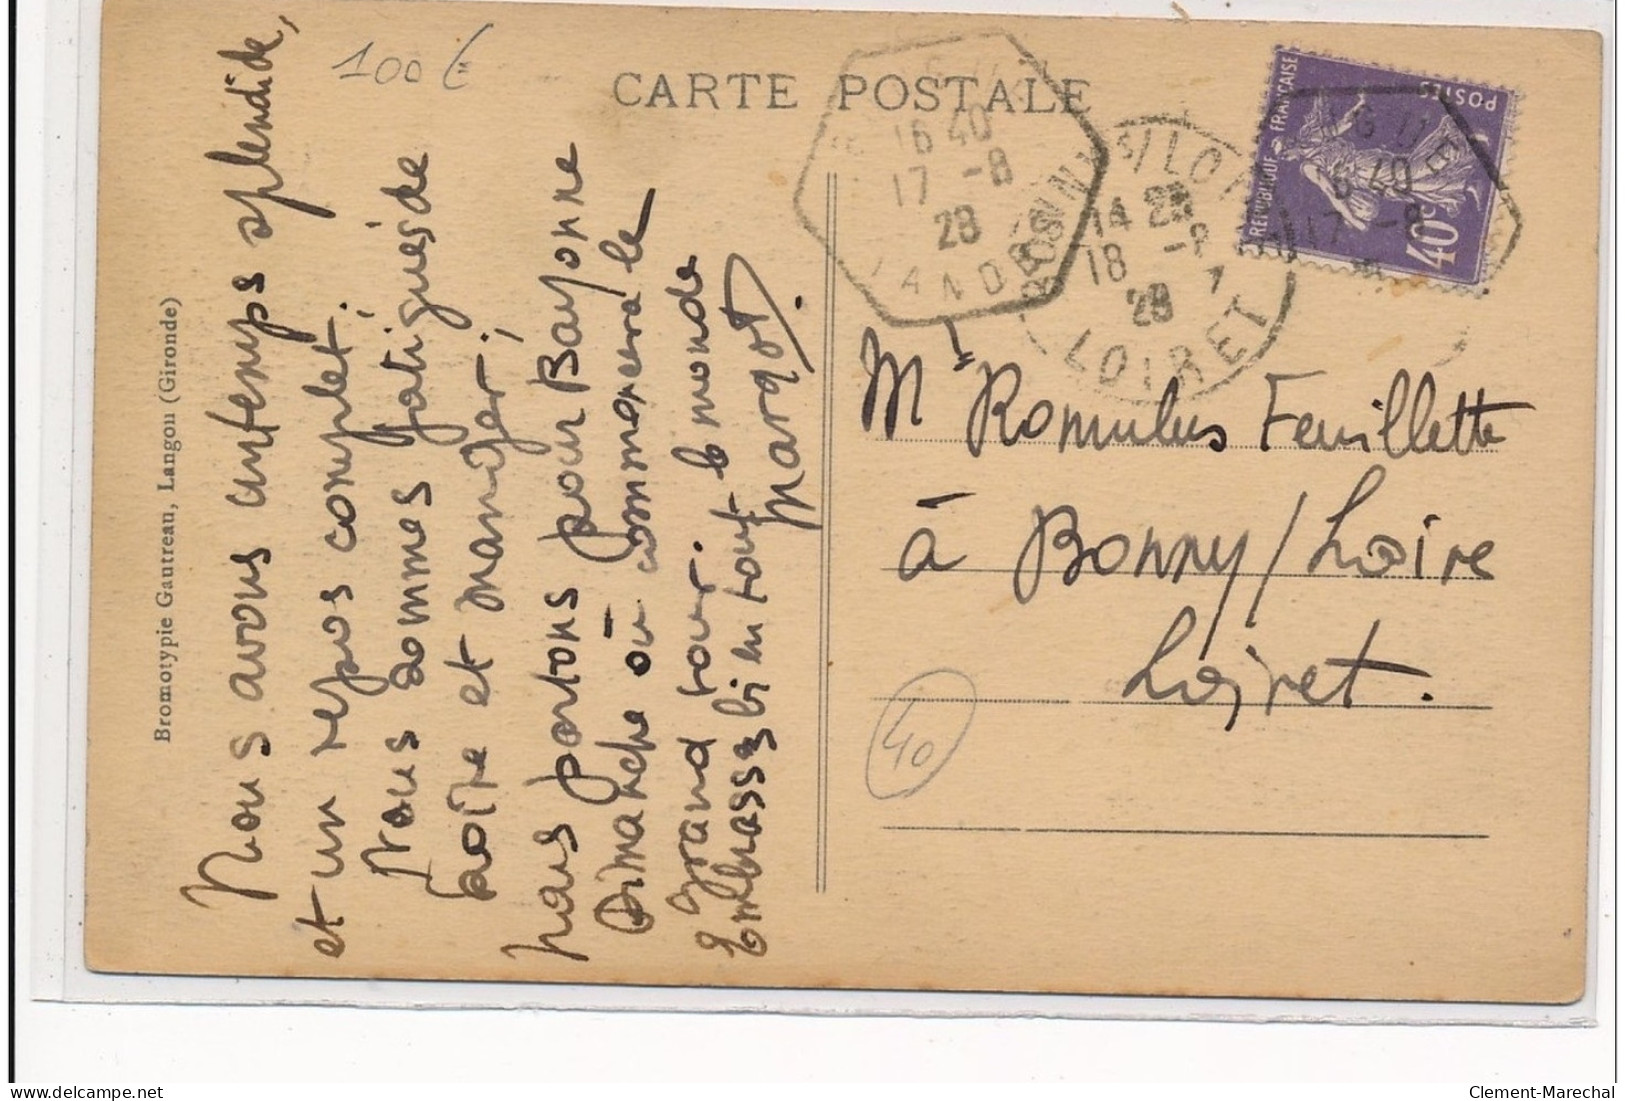 100€
CARTE POSTALE
16 40
17 -8
28
LANDES
BONNY S/LOIRE
14 25
18 -8
28
LOIRET
REPUBLIQUE FRANÇAISE
POSTES
40c
16 40
17 -8
Bromotypie Gautreau, Langon (Gironde)
Nous avons un temps splendide,
et un repos complet;
Nous sommes fatigués de
boire et manger;
nous partons pour Bayonne
Dimanche où commencera le
grand tour.
Embrassz bien tout le monde
Margot.
Mr Romulus Feuillette
à Bonny/Loire
Loiret.
40
Clement-Marechal